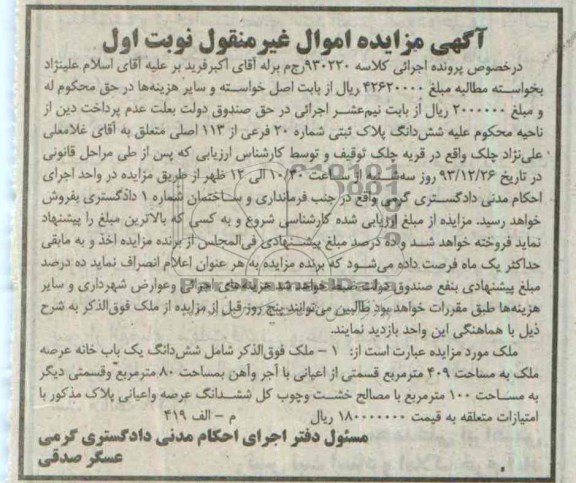 آگهی مزایده اموال غیرمنقول نوبت اول
درخصوص پرونده اجرائی کلاسه ۹۳۰۲۲۰رج‌م برله آقای اکبرفرید بر علیه آقای اسلام علینژاد
بخواسته مطالبه مبلغ ۴۲۶۲۰۰۰۰ ریال از بابت اصل خواسته و سایر هزینه‌ها در حق محکوم له
و مبلغ ۲۰۰۰۰۰۰ ریال از بابت نیم‌عشر اجرائی در حق صندوق دولت بعلت عدم پرداخت دین از
ناحیه محکوم علیه شش‌دانگ پلاک ثبتی شماره ۲۰ فرعی از ۱۱۳ اصلی متعلق به آقای غلامعلی
علی‌نژاد چلک واقع در قریه چلک توقیف و توسط کارشناس ارزیابی که پس از طی مراحل قانونی
در تاریخ ۹۳/۱۲/۲۶ روز سه‌شنبه از ساعت ۱۰/۳۰ الی ۱۲ ظهر از طریق مزایده در واحد اجرای
احکام مدنی دادگستری گرمی واقع در جنب فرمانداری و ساختمان شماره ۱ دادگستری بفروش
خواهد رسید. مزایده از مبلغ ارزیابی شده کارشناسی شروع و به کسی که بالاترین مبلغ را پیشنهاد
نماید فروخته خواهد شد و ده درصد مبلغ پیشنهادی فی‌المجلس از برنده مزایده اخذ و به مابقی
حداکثر یک ماه فرصت داده می‌شود که برنده مزایده به هر عنوان اعلام انصراف نماید ده درصد
مبلغ پیشنهادی بنفع صندوق دولت ضبط خواهد شد هزینه‌های اجرائی وعوارض شهرداری و سایر
هزینه‌ها طبق مقررات خواهد بود طالبین می‌توانند پنج روز قبل از مزایده از ملک فوق‌الذکر به شرح
ذیل با هماهنگی این واحد بازدید نمایند.
ملک مورد مزایده عبارت است از: ۱ – ملک فوق‌الذکر شامل شش‌دانگ یک باب خانه عرصه
ملک به مساحت ۴۰۹ مترمربع قسمتی از اعیانی با آجر وآهن بمساحت ۸۰ مترمربع وقسمتی دیگر
به مساحت ۱۰۰ مترمربع با مصالح خشت وچوب کل ششدانگ عرصه واعیانی پلاک مذکور با
امتیازات متعلقه به قیمت ۱۸۰۰۰۰۰۰۰ ریال م – الف ۴۱۹
مسئول دفتر اجرای احکام مدنی دادگستری گرمی
عسگر صدقی